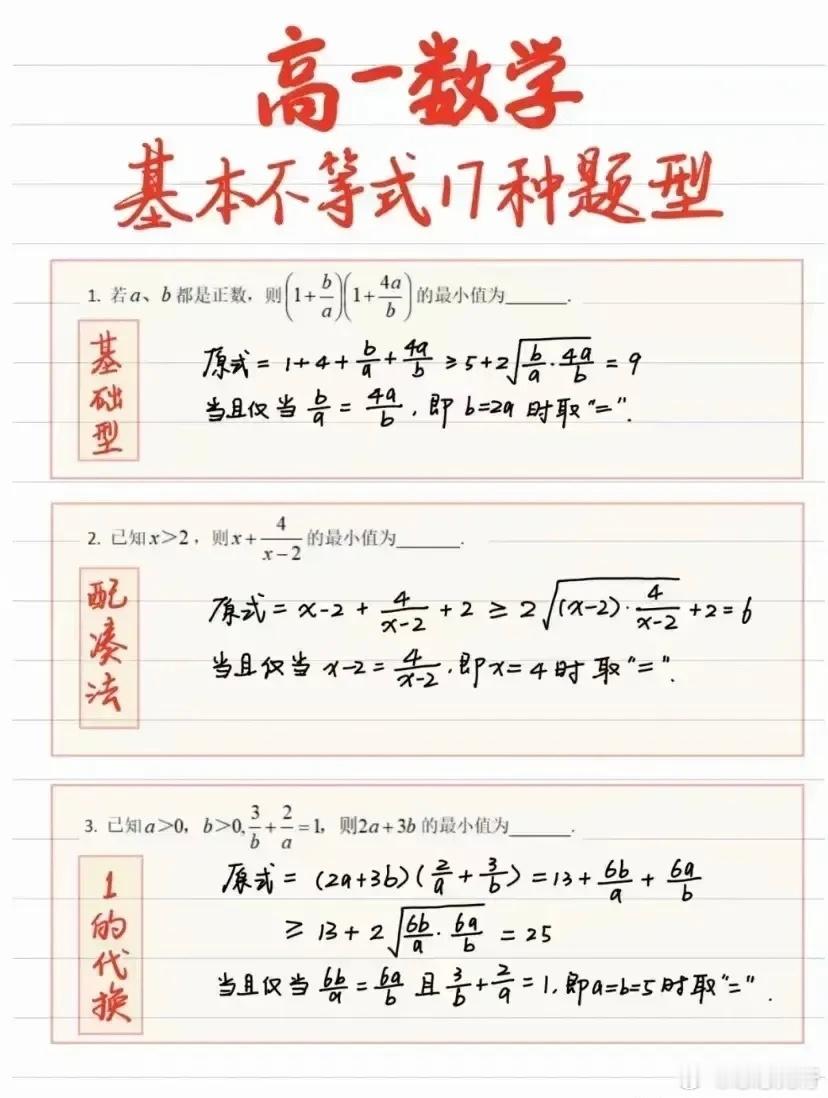 高一数学
基本不等式17种题型
1. 若a、b都是正数，则(1+b/a)(1+4a/b)的最小值为______.
基础型
原式=1+4+b/a+4a/b≥5+2√(b/a·4a/b)=9
当且仅当b/a=4a/b，即b=2a时取"=".
2. 已知x>2，则x+4/(x-2)的最小值为______.
配凑法
原式=x-2+4/(x-2)+2≥2√((x-2)·4/(x-2))+2=6
当且仅当x-2=4/(x-2).即x=4时取"=".
3. 已知a>0，b>0,3/b+2/a=1，则2a+3b的最小值为______.
1的代换
原式=(2a+3b)(2/a+3/b)=13+6b/a+6a/b
≥13+2√(6b/a·6a/b)=25
当且仅当6b/a=6a/b且3/b+2/a=1.即a=b=5时取"=".